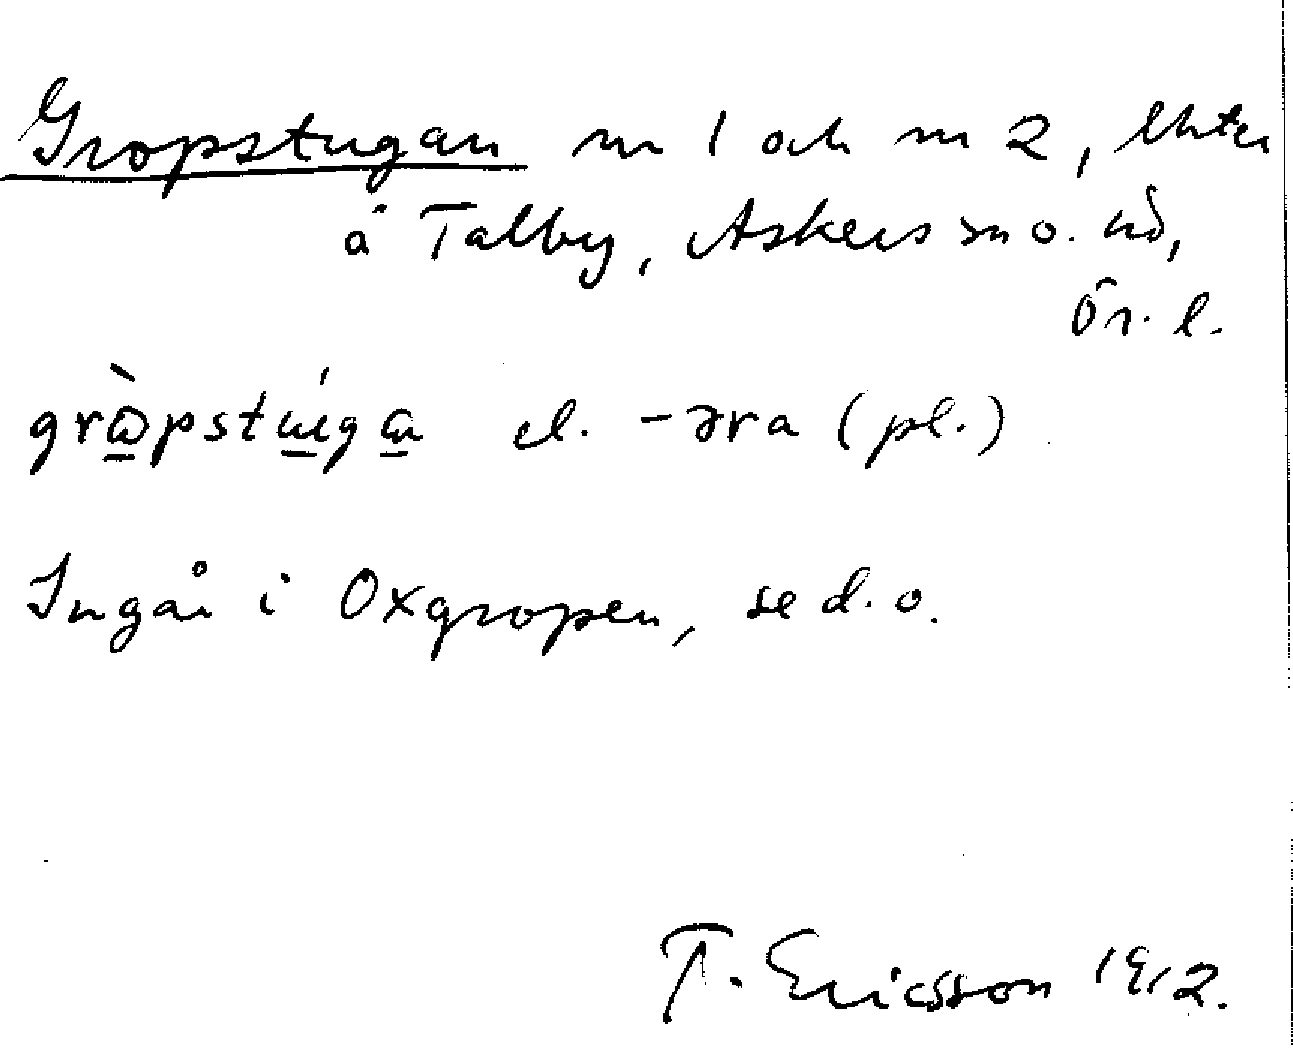 Gropstugan nr 1 och nr 2, lhter
å Talby, Askers sn o. hd,
Ör. l.
grɷ̀pstɯ́gɑ el. -əra (pl.)
Ingår i Oxgropen, se d. o.
T. Ericsson 1912.